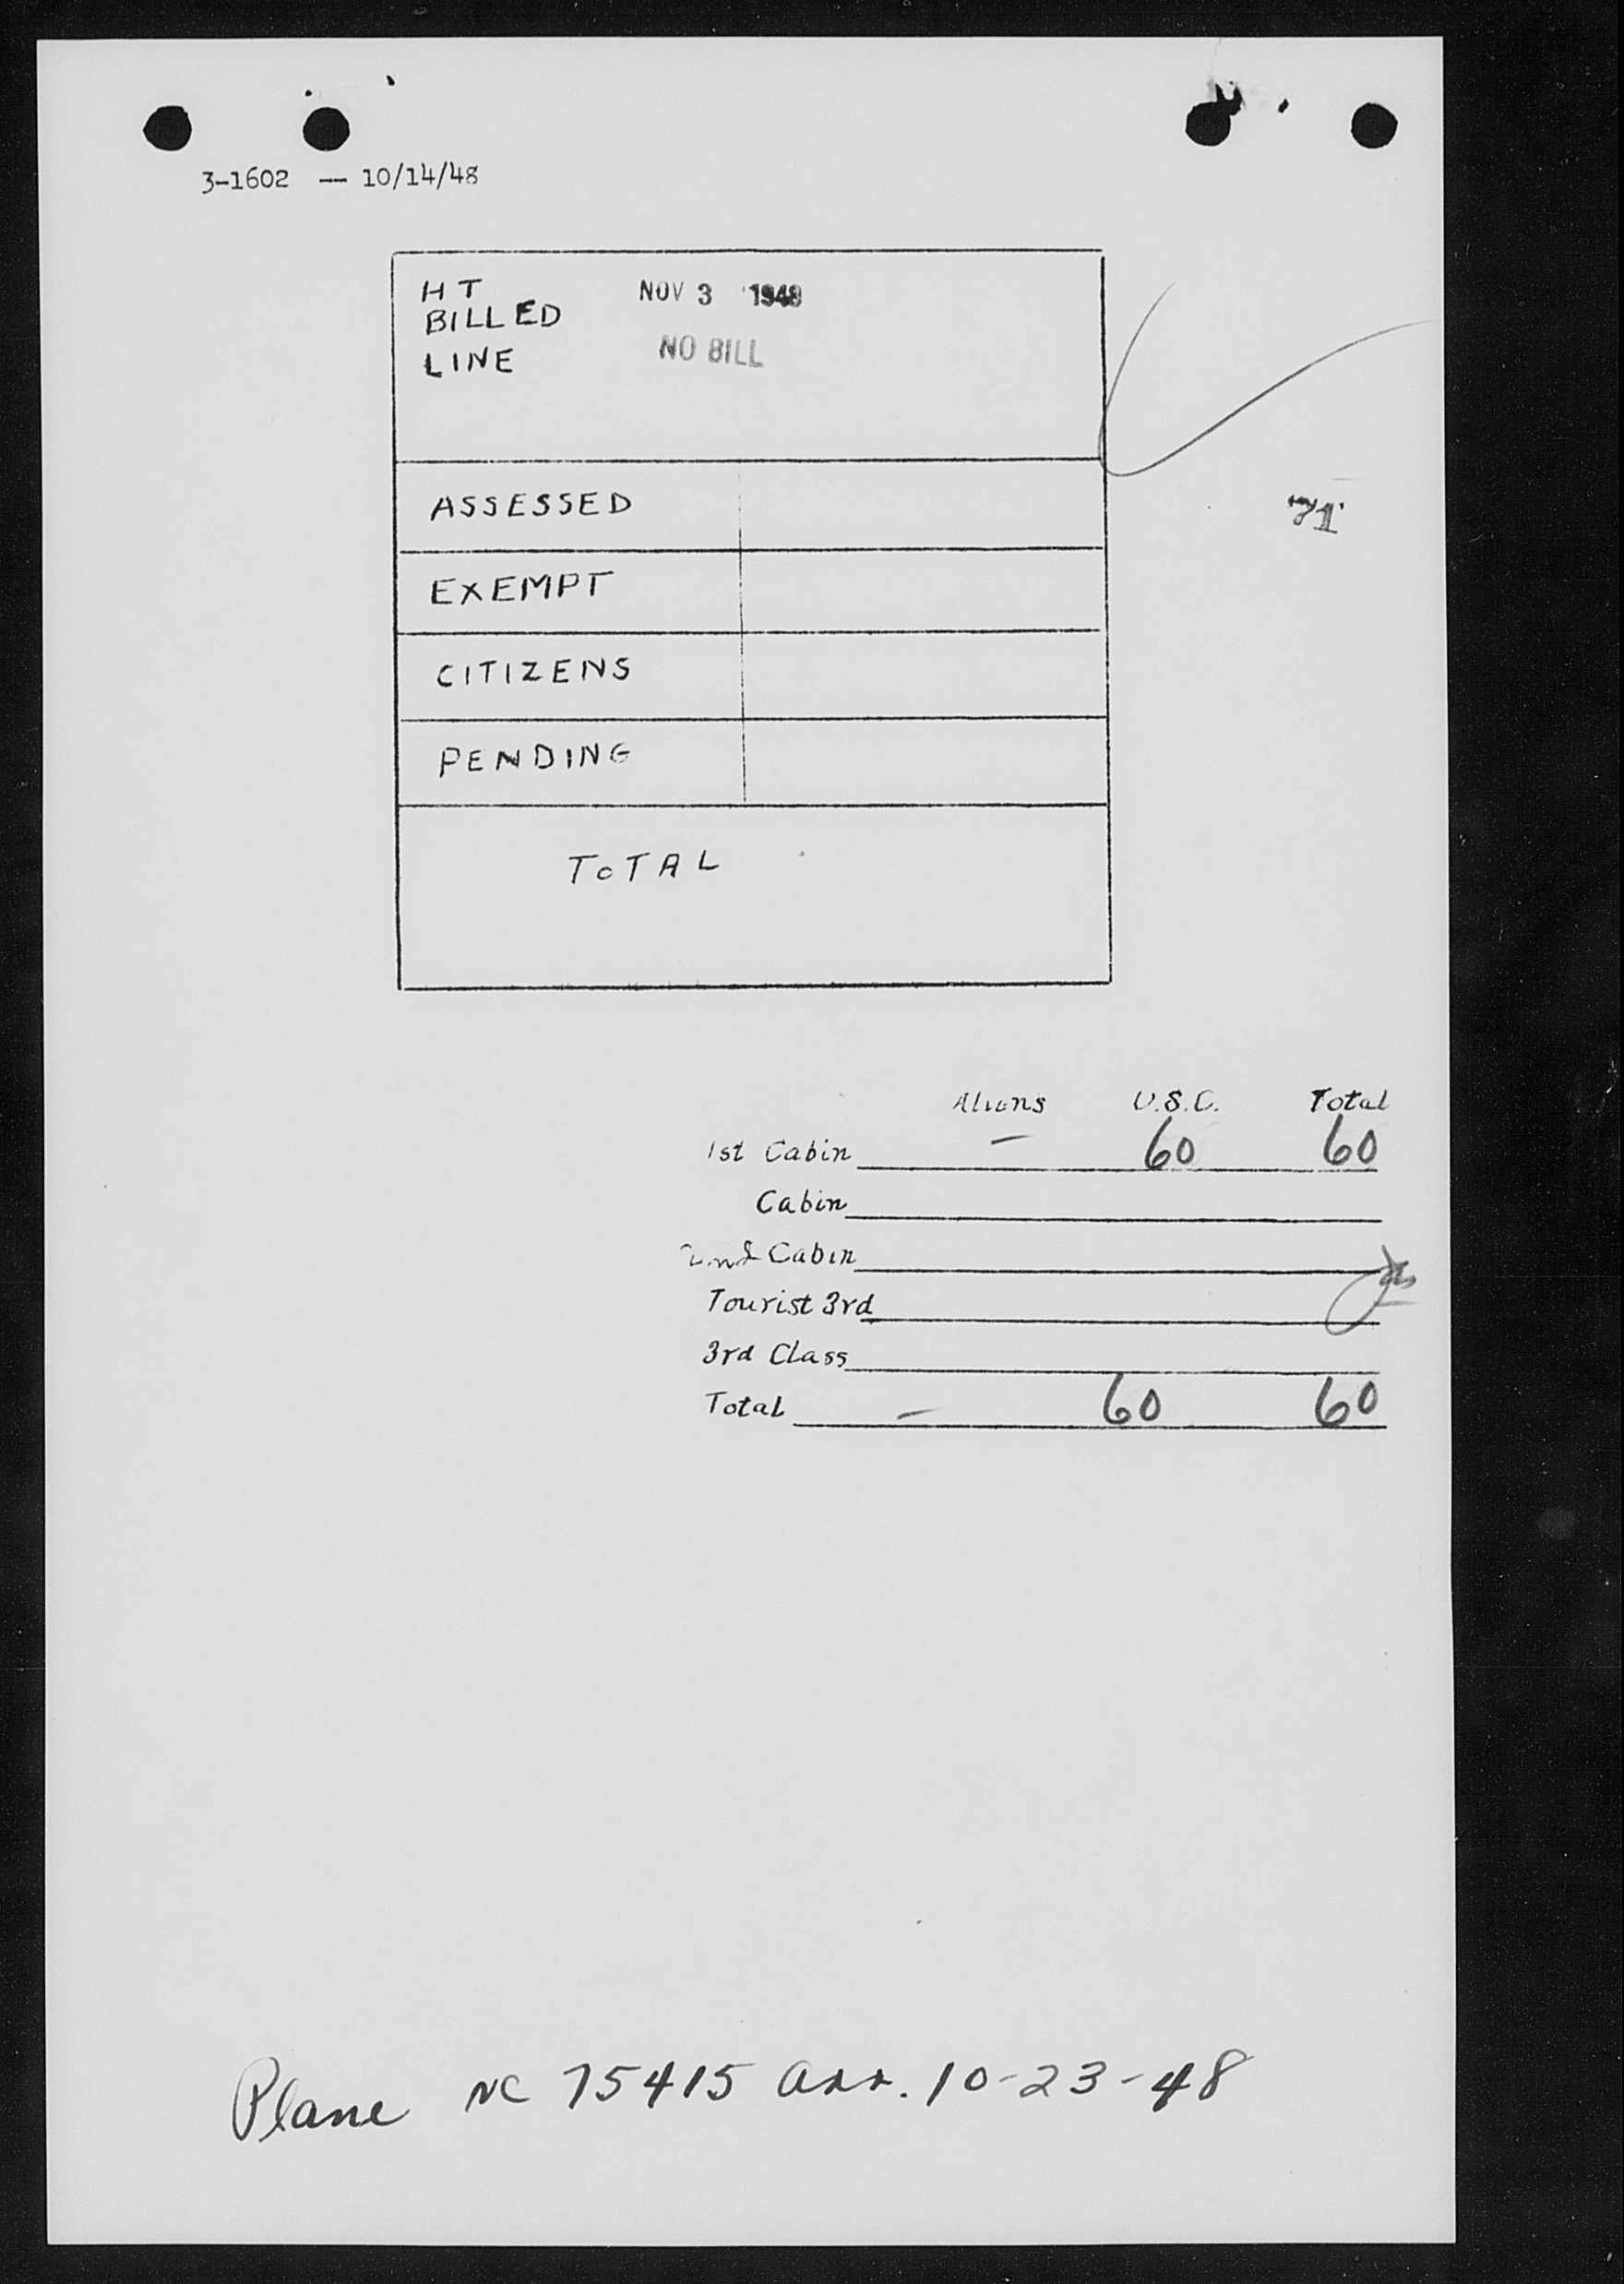 3-1602 — 10/14/48
HT NOV 3 1948
BILLED
LINE NO BILL
ASSESSED
EXEMPT
CITIZENS
PENDING
TOTAL
Aliens U.S.C. Total
1st Cabin — 60 60
Cabin
2nd Cabin
Tourist 3rd
3rd Class
Total — 60 60
Plane NC 75415 arr. 10-23-48